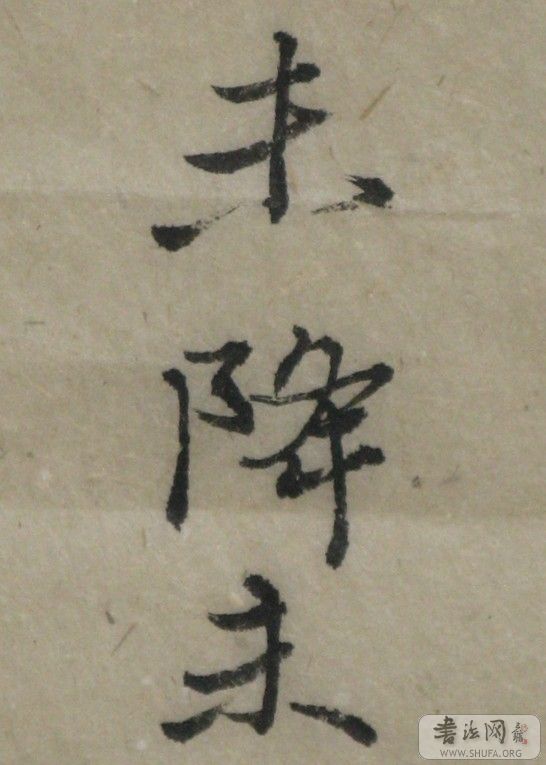 未降未
書法网
WWW.SHUFA.ORG